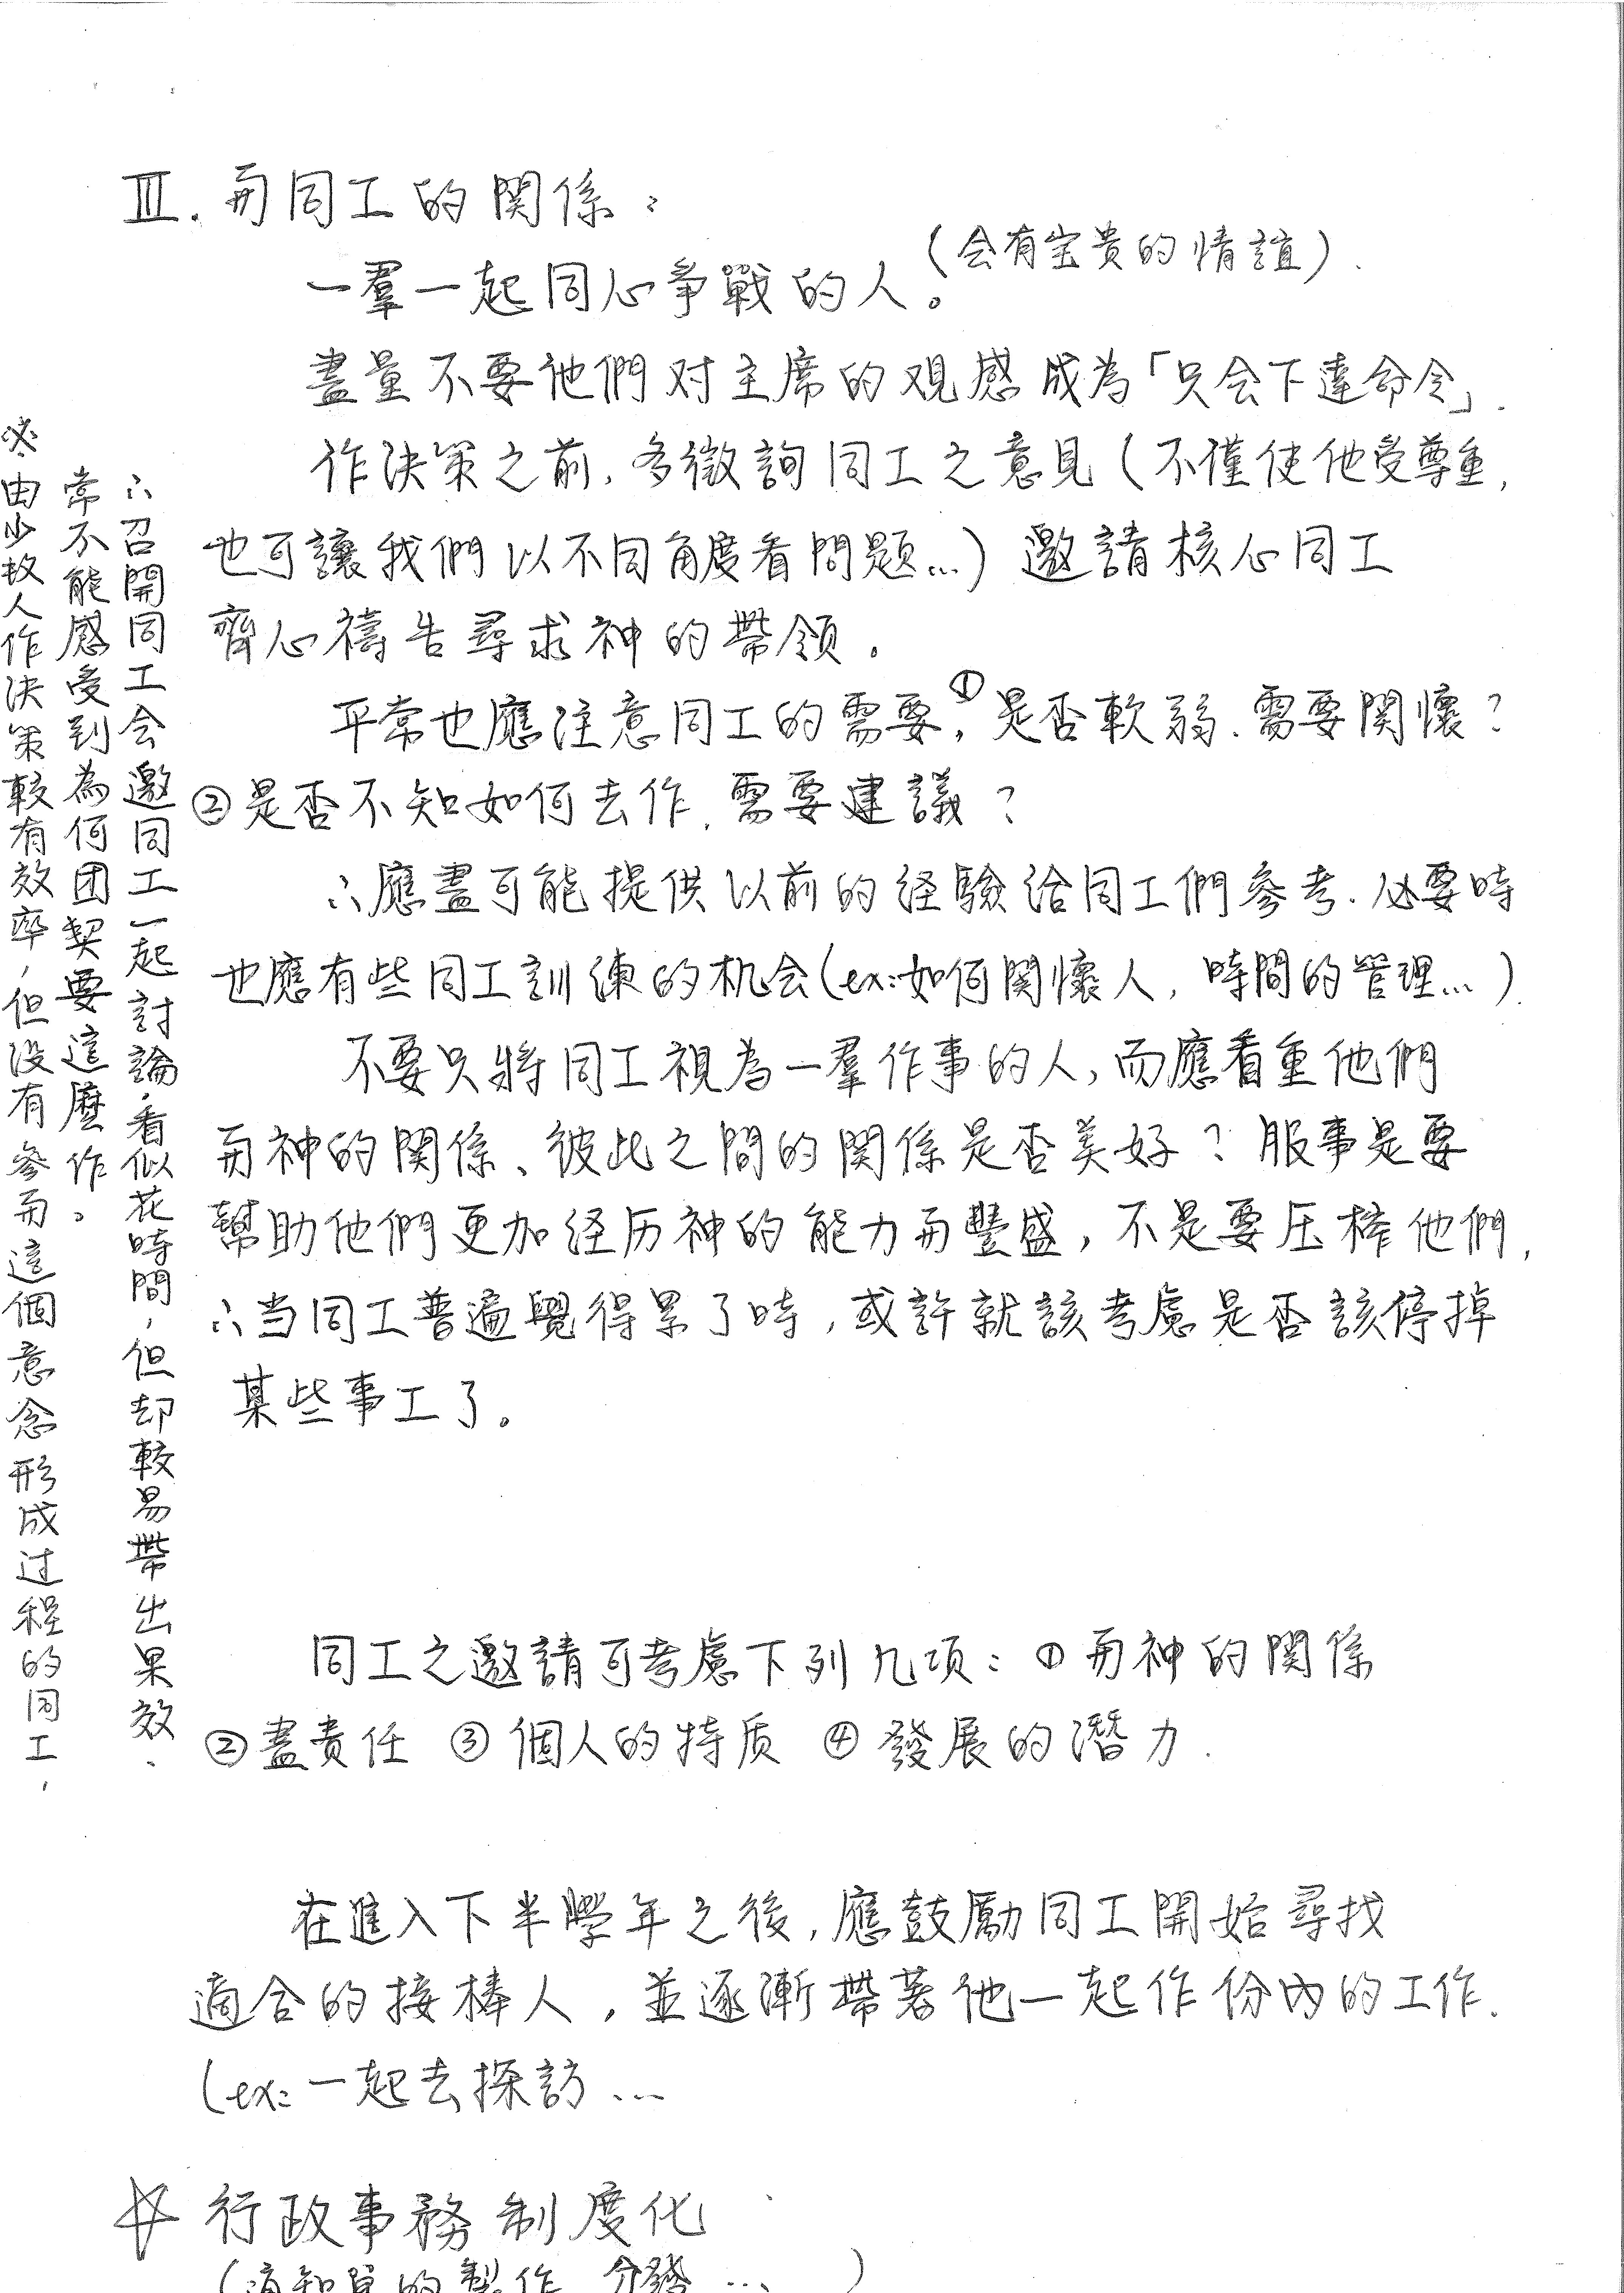 III. 而同工的関係：
(会有宝贵的情誼).
一羣一起同心爭戰的人。
盡量不要他們对主席的观感成為「只会下達命令」.
作決策之前,多徵詢同工之意見(不僅使他受尊重,
也可讓我們以不同角度看問題…)邀請核心同工
齊心禱告尋求神的帶領.
平常也應注意同工的需要,①是否軟弱.需要関懷?
②是否不知如何去作.需要建議?
∴應盡可能提供以前的経驗给同工們參考.必要時
也應有些同工訓練的机会(ex:如何関懷人,時間的管理…).
不要只將同工視為一羣作事的人,而應看重他們
而神的関係、彼此之間的関係是否美好?服事是要
幫助他們更加経历神的能力而豐盛,不是要压榨他們,
∴当同工普遍覺得累了時,或許就該考慮是否該停掉
某些事工了。
※由少数人作決策較有效率,但没有參而這個意念形成过程的同工,
常不能感受到為何团契要這麼作。
∴召開同工会邀同工一起討論.看似花時間,但却較易帶出果效.
同工之邀請可考慮下列几项:①而神的関係
②盡責任 ③個人的特质 ④發展的潛力.
在進入下半學年之後,應鼓勵同工開始尋找
適合的接棒人,並逐漸帶著他一起作份內的工作.
(ex:一起去探訪…
☆ 行政事務制度化
(通知單的製作、分發…)